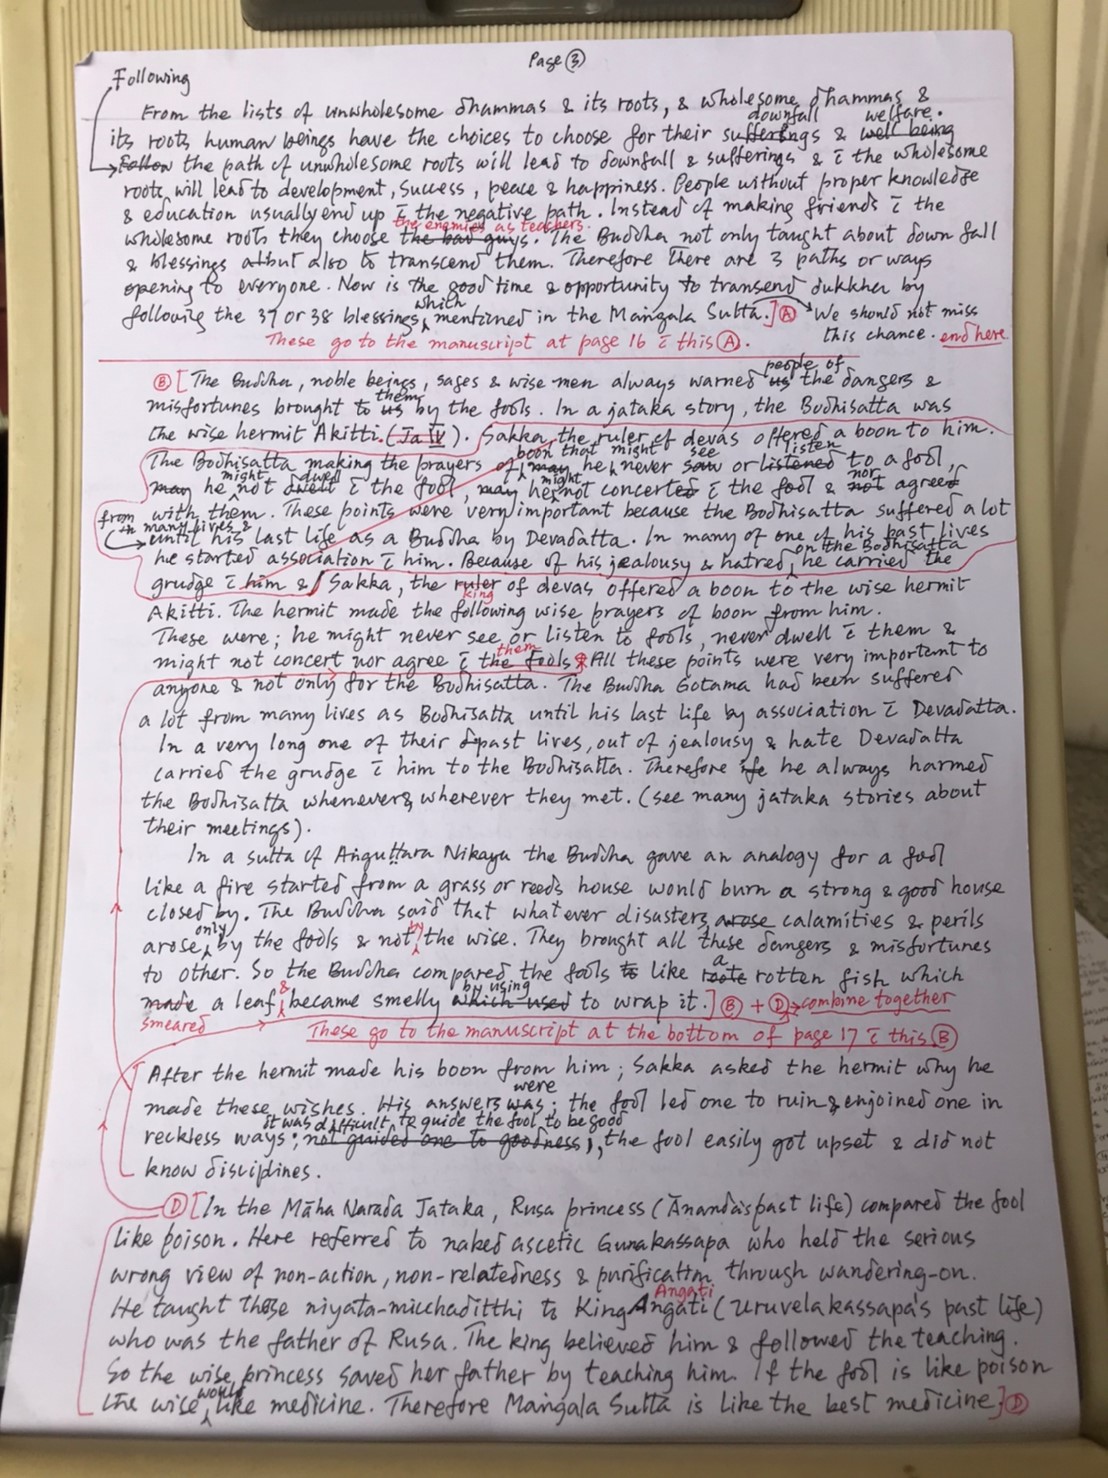 Page ③
Following
From the lists of unwholesome dhammas & its roots, & wholesome dhammas &
downfall welfare.
its roots human beings have the choices to choose for their sufferings & well being
Follow the path of unwholesome roots will lead to downfall & sufferings & c̄ the wholesome
roots will lead to development, success, peace & happiness. People without proper knowledge
& education usually end up c̄ the negative path. Instead of making friends c̄ the
the enemies as teachers.
wholesome roots they choose the bad guys. The Buddha not only taught about down fall
& blessings but also to transcend them. Therefore there are 3 paths or ways
opening to everyone. Now is the good time & opportunity to transend dukkha by
which
following the 37 or 38 blessings mentioned in the Maṅgala Sutta.] Ⓐ We should not miss
this chance. end here
These go to the manuscript at page 16 c̄ this Ⓐ.
people of
Ⓑ [The Buddha, noble beings, sages & wise men always warned us the dangers &
them
misfortunes brought to us by the fools. In a jataka story, the Bodhisatta was
the wise hermit Akitti. (Ja IV). Sakka, the ruler of devas offered a boon to him.
boon that might see listen
The Bodhisatta making the prayers of may he never saw or listened to a fool,
might dwell might nor
may he not dwelt c̄ the fool, may he not concerted c̄ the fool & not agreed
from with them. These points were very important because the Bodhisatta suffered a lot
in many lives &
until his last life as a Buddha by Devadatta. In many of one of his past lives
on the Bodhisatta
he started association c̄ him. Because of his jealousy & hatred, he carried the
grudge c̄ him & Sakka, the ruler of devas offered a boon to the wise hermit
king
Akitti. The hermit made the following wise prayers of boon from him.
These were; he might never see or listen to fools, never dwell c̄ them &
them
might not concert nor agree c̄ the fools. All these points were very important to
anyone & not only for the Bodhisatta. The Buddha Gotama had been suffered
a lot from many lives as Bodhisatta until his last life by association c̄ Devadatta.
In a very long one of their past lives, out of jealousy & hate Devadatta
carried the grudge c̄ him to the Bodhisatta. Therefore he always harmed
the Bodhisatta whenever & wherever they met. (see many jataka stories about
their meetings).
In a sutta of Aṅguttara Nikaya the Buddha gave an analogy for a fool
like a fire started from a grass or reeds house would burn a strong & good house
closed by. The Buddha said that whatever disasters, arose calamities & perils
only by
arose by the fools & not the wise. They brought all these dangers & misfortunes
a
to other. So the Buddha compared the fools to like rotten fish which
& by using
made a leaf became smelly which used to wrap it.] Ⓑ + Ⓓ → combine together
smeared
These go to the manuscript at the bottom of page 17 c̄ this Ⓑ
After the hermit made his boon from him; Sakka asked the hermit why he
were
made these wishes. His answers was; the fool led one to ruin & enjoined one in
it was difficult to guide the fool to be good
reckless ways; not guided one to goodness; the fool easily got upset & did not
know disciplines.
Ⓓ [In the Māha Narada Jataka, Rusa princess (Ānanda's past life) compared the fool
like poison. Here referred to naked ascetic Gunakassapa who held the serious
wrong view of non-action, non-relatedness & purification through wandering-on.
Angati
He taught those niyata-micchaditthi to King Angati (Uruvelakassapa's past life)
who was the father of Rusa. The king believed him & followed the teaching.
So the wise princess saved her father by teaching him. If the fool is like poison
would
the wise like medicine. Therefore Maṅgala Sutta is like the best medicine] Ⓓ